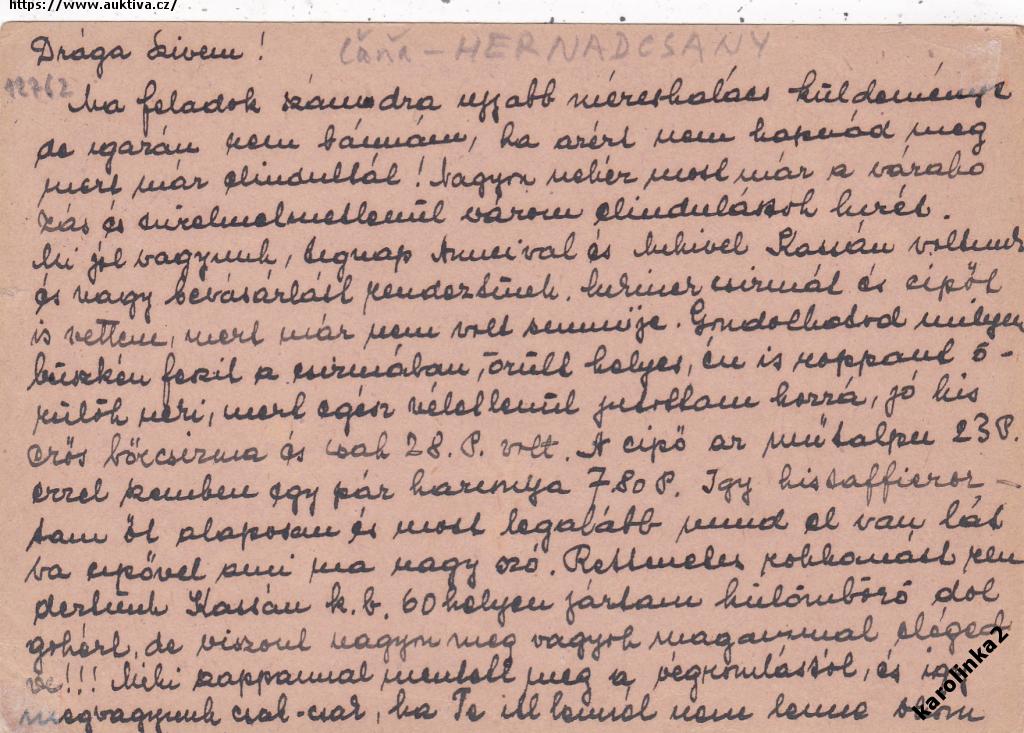 https://www.auktiva.cz/
Drága Szivem!
Čáňa - HERNADCSANY
12762
Ma feladok számodra ujabb mézeskalács küldeményt
de igazán nem bánnám, ha azért nem kapnád meg
mert már elindultál! Nagyon nehéz most már a várako
zás és türelmetlenül várom elindulástok hirét.
Mi jól vagyunk, tegnap Ancival és Mikivel Kassán voltunk
és nagy bevásárlást rendeztünk. csizmát és cipőt
is vettem, mert már nem volt semmije. Gondolhatod milyen
büszkén feszit a csizmában, örült helyes, én is roppant ö-
rülök neki, mert egész véletlenül jutottam hozzá, jó kis
erős bőrcsizma és csak 28. P. volt. A cipő az műtalpu 23 P.
ezzel szemben egy pár harisnya 7 80 P. Igy kistaffiroz-
tam őt alaposan és most legalább mind el van lát
va cipővel ami ma nagy szó. Rettenetes rohanást ren
deztünk Kassán k.b. 60 helyen jártam külömböző dol
gokért, de viszont nagyon meg vagyok magammal eléged
ve!!! Miki szappannal mentett meg a végromlástól, és igy
megvagyunk csak-csak, ha Te itt lennél nem lenne
karolinka2